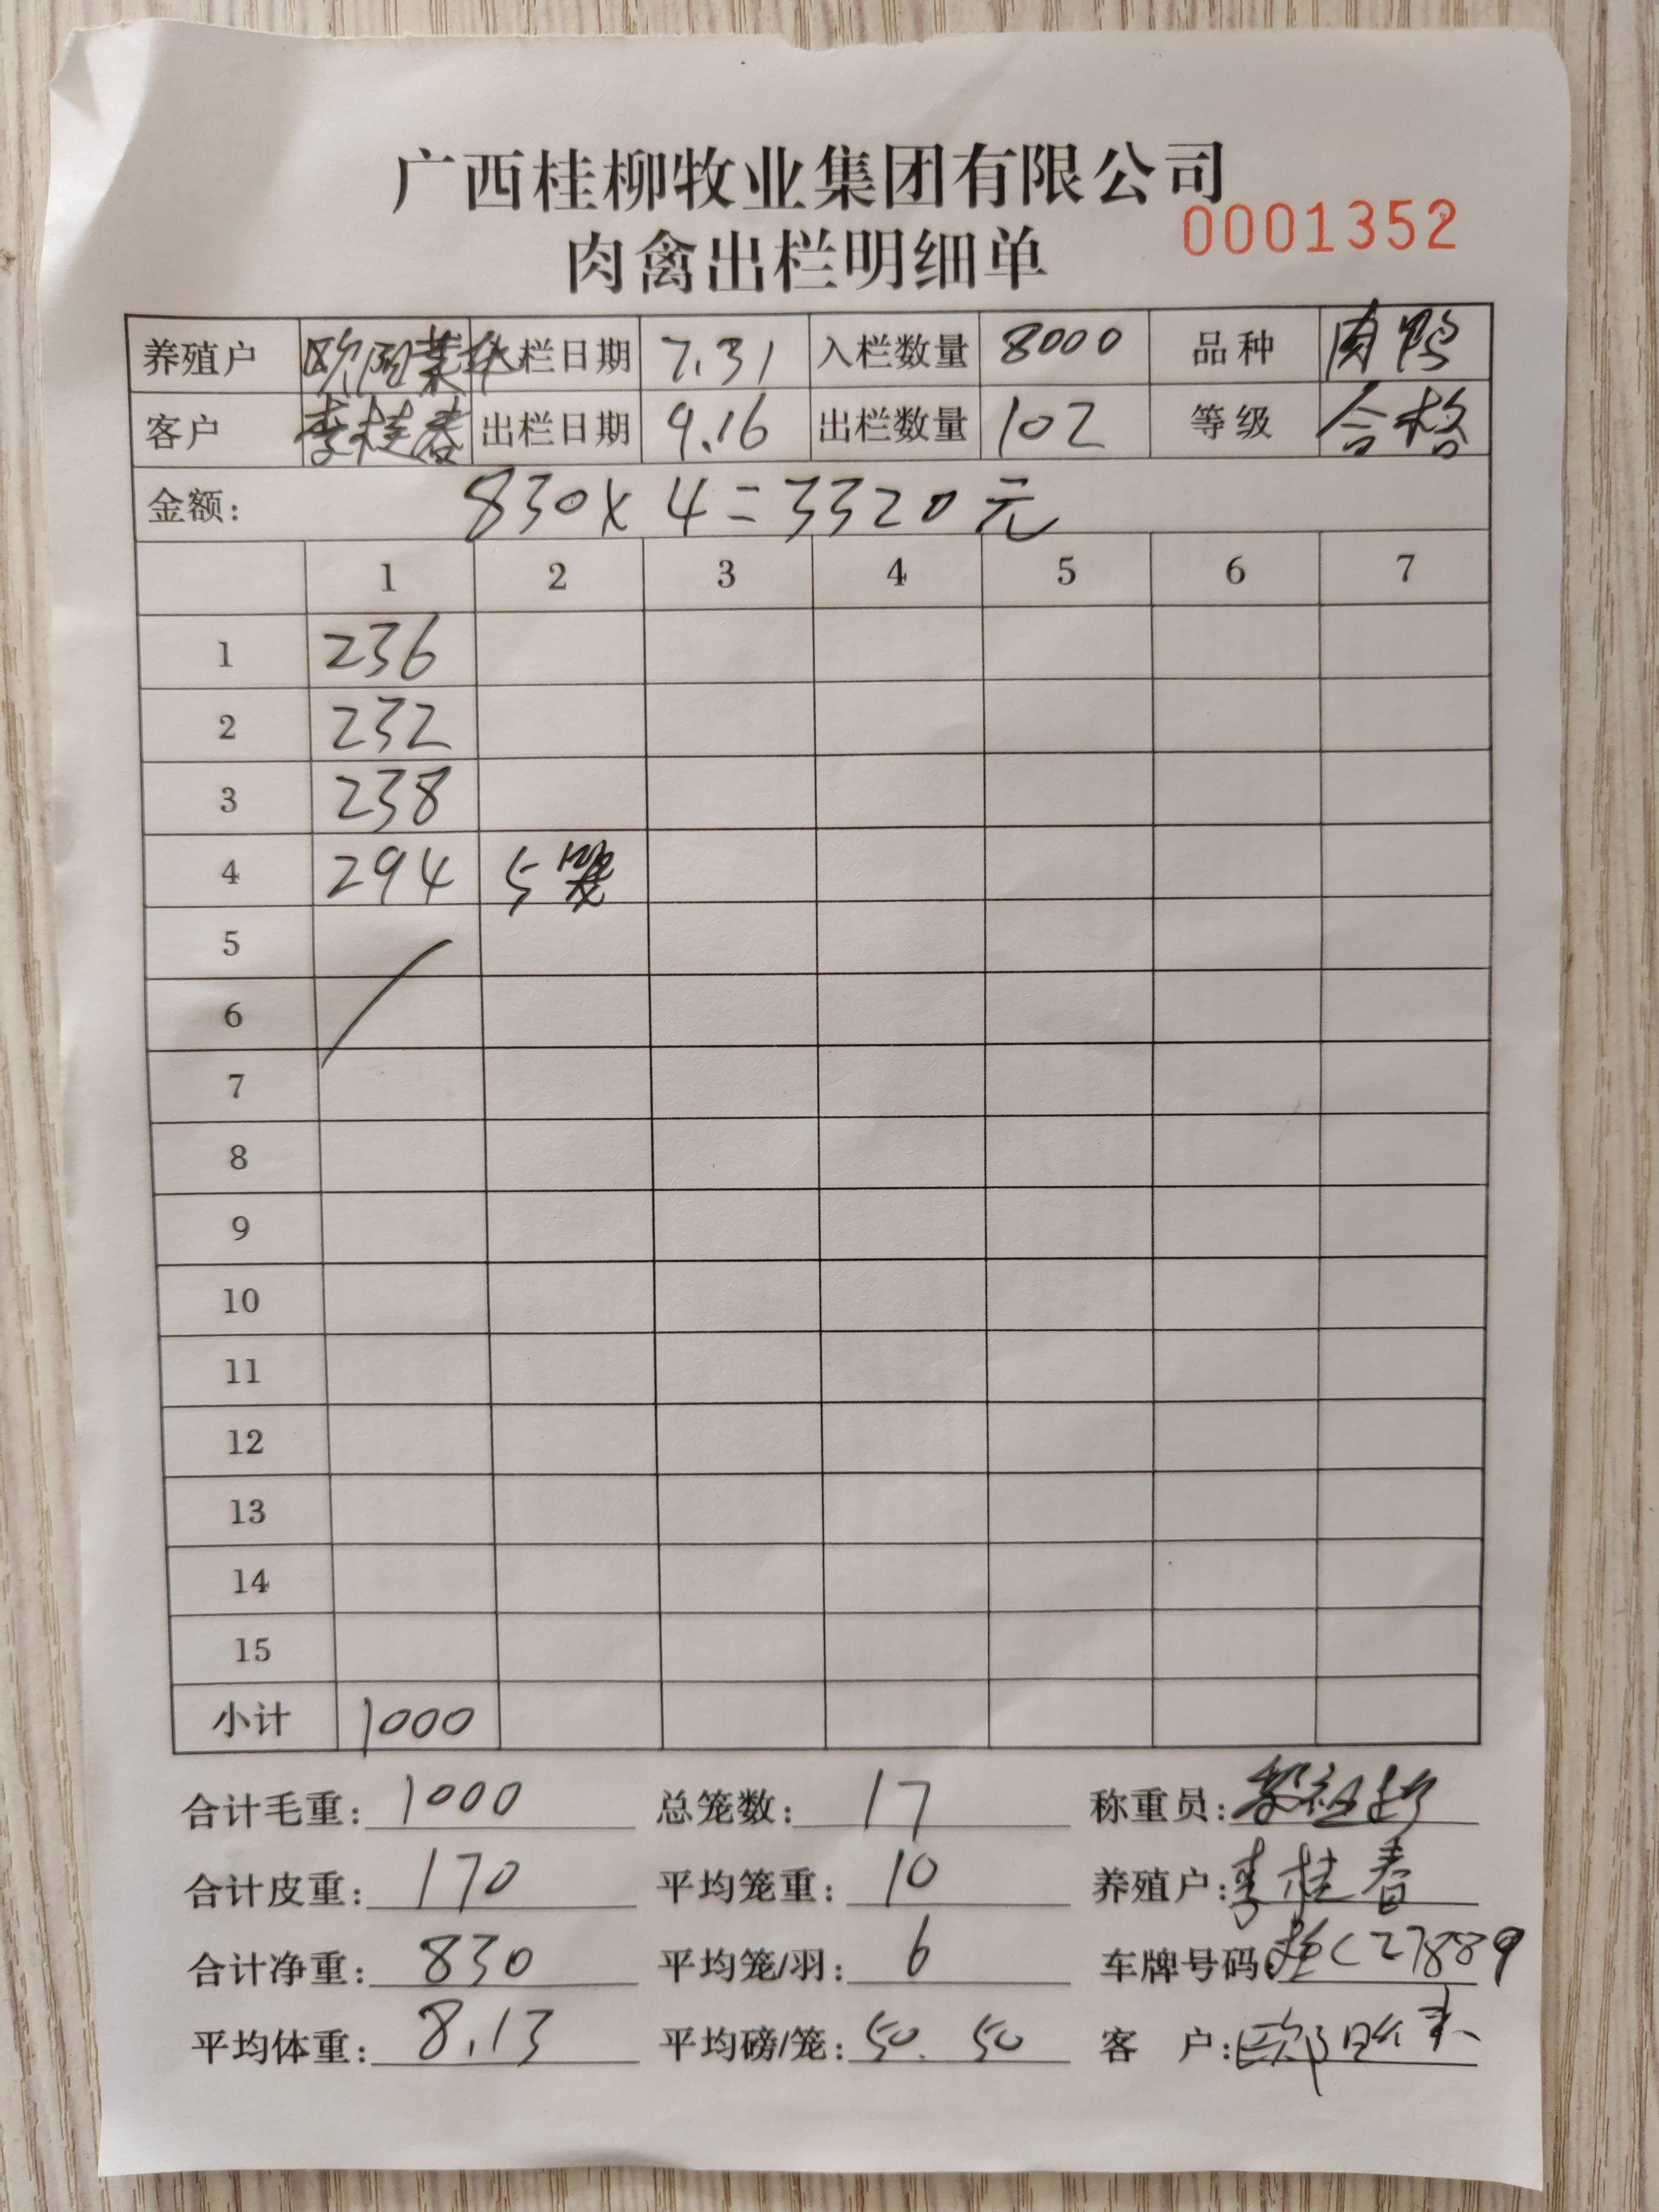 广西桂柳牧业集团有限公司
肉禽出栏明细单 0001352
养殖户 欧阳 入栏日期 7.31 入栏数量 8000 品种 肉鸭
客户 李桂春 出栏日期 9.16 出栏数量 102 等级 合格
金额: 830×4=3320元
1 2 3 4 5 6 7
1 236
2 232
3 238
4 294 5笼
5
6
7
8
9
10
11
12
13
14
15
小计 1000
合计毛重: 1000 总笼数: 17 称重员:
合计皮重: 170 平均笼重: 10 养殖户: 李桂春
合计净重: 830 平均笼/羽: 6 车牌号码: 桂C27889
平均体重: 8.13 平均磅/笼: 50. 50 客 户: